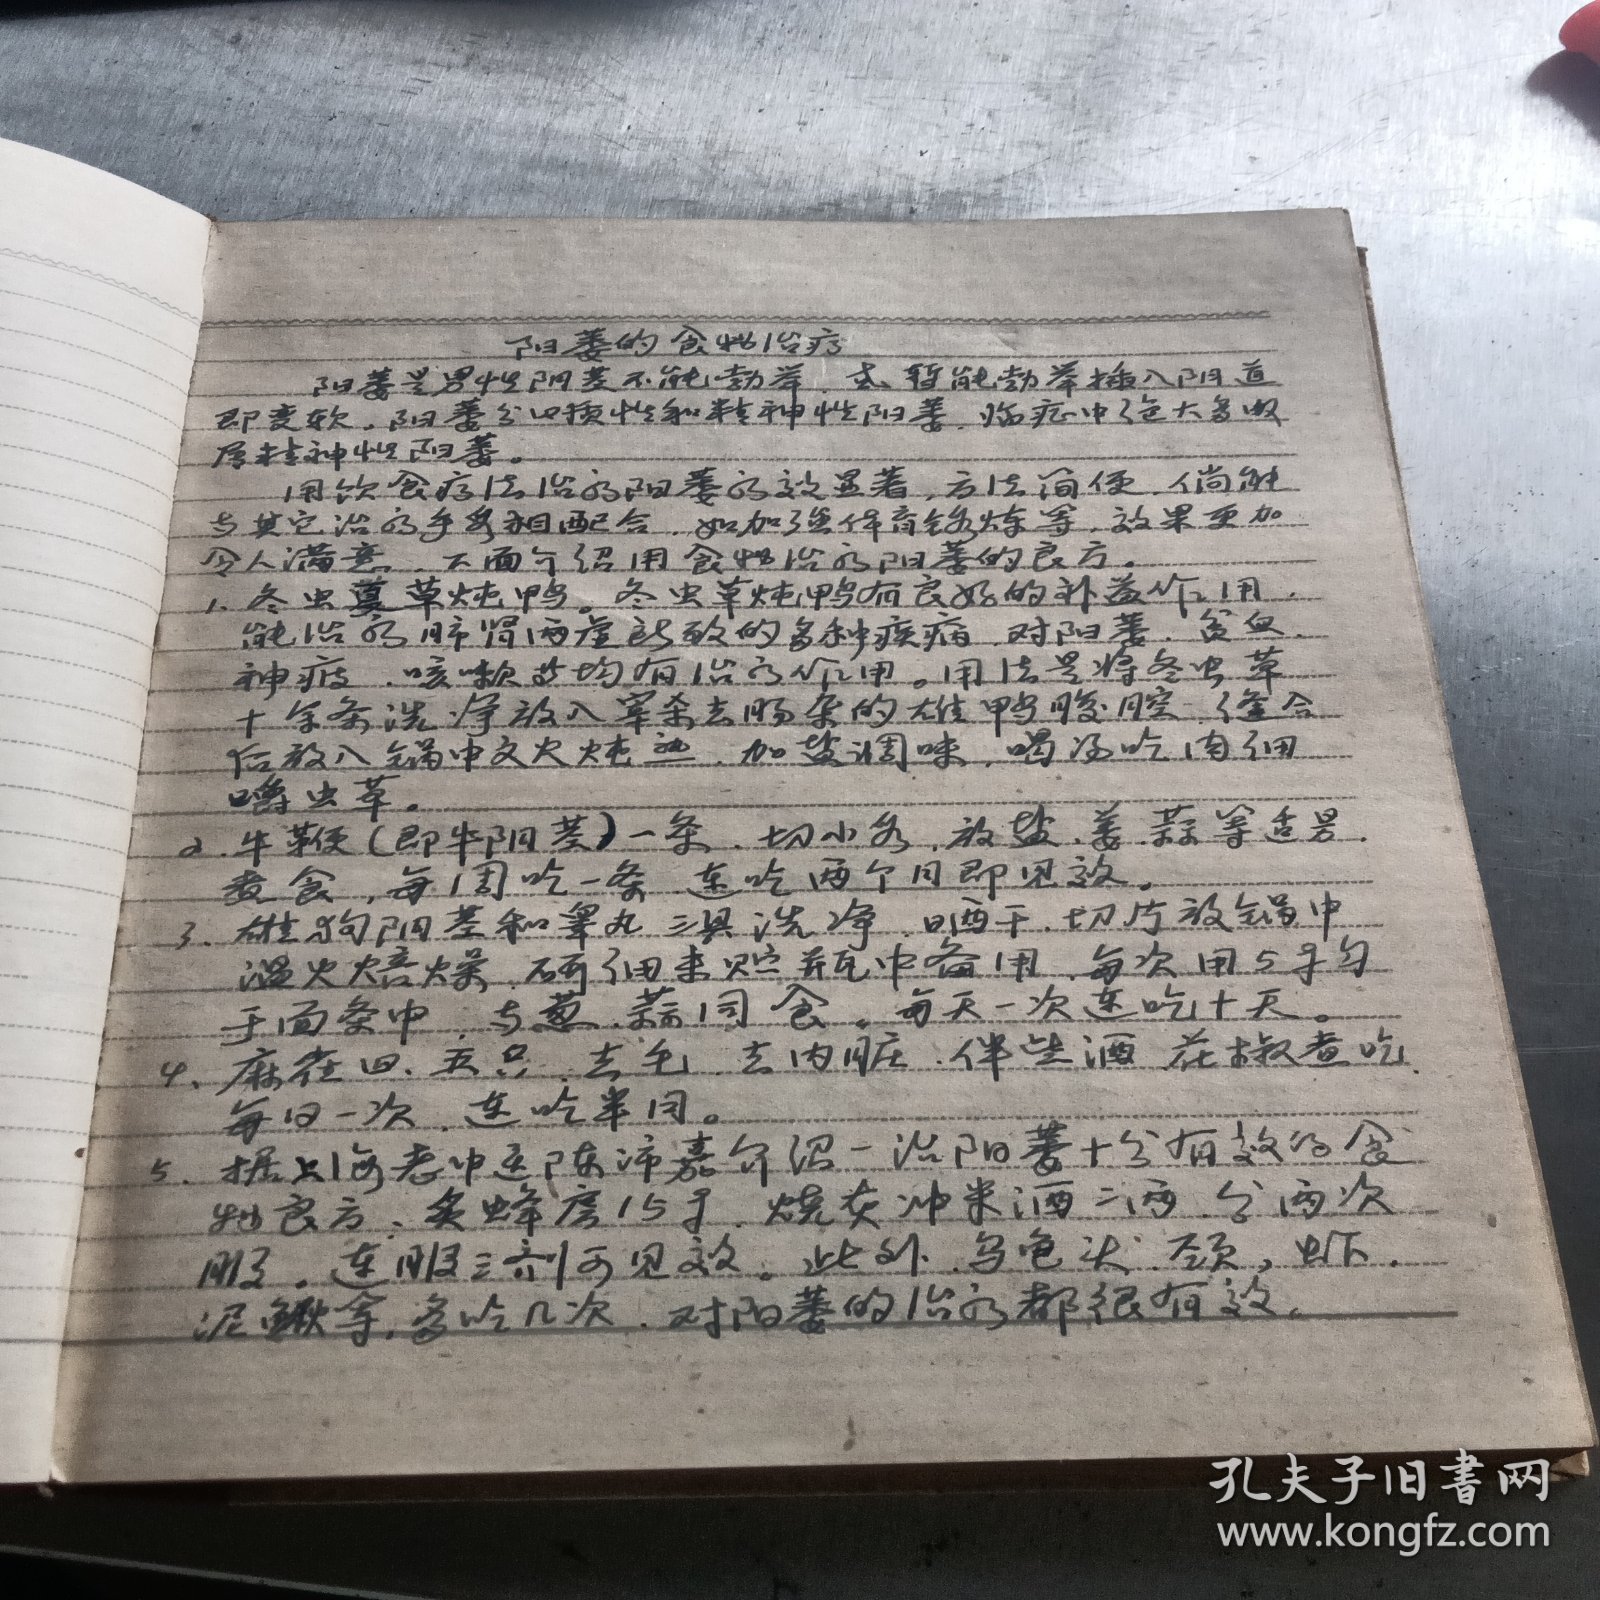 阳萎的食物治疗
阳萎是男性阴茎不能勃举、或暂能勃举插入阴道
即变软。阳萎分口质性和精神性阳萎、临症中绝大多数
属精神性阳萎。
用饮食疗法治疗阳萎疗效显著，方法简便、倘能
与其它治疗手段相配合、如加强体育锻炼等、效果更加
令人满意、下面介绍用食物治疗阳萎的良方。
1、冬虫夏草炖鸭。冬虫草炖鸭有良好的补益作用、
能治疗肺肾两虚所致的多种疾病、对阳萎、贫血、
神疲、咳嗽等均有治疗作用。用法是将冬虫草
十余条洗净放入宰杀去肠杂的雄鸭腹腔、缝合
后放入锅中文火炖熟、加盐调味、喝汤吃肉细
嚼虫草。
2、牛鞭(即牛阴茎)一条、切小段、放盐、姜、蒜等适量、
煮食，每周吃一条、连吃两个月即见效。
3、雄狗阴茎和睾丸三具洗净、晒干、切片放锅中
温火焙燥、研细末贮瓶中备用、每次用5于
于面条中、与葱、蒜同食。每天一次连吃十天。
4、麻雀四、五只、去毛、去内脏、伴些酒、花椒煮吃、
每日一次、连吃半月。
5、据上海老中医陈沛嘉介绍一治阳萎十分有效的食
物良方、炙蜂房15于、烧灰冲米酒二两、分两次
服。连服三剂可见效。此外、乌龟头、颈，虾、
泥鳅等、多吃几次、对阳萎的治疗都很有效。
孔夫子旧书网
www.kongfz.com